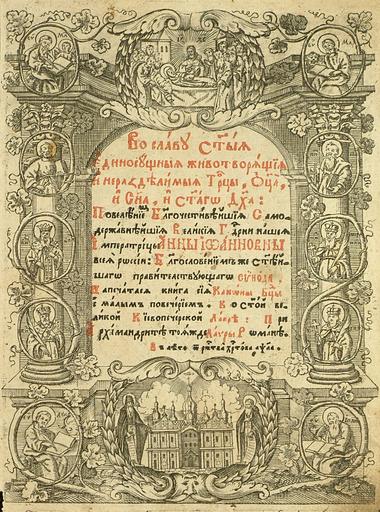 Во славу Ст҃ыѧ
Єдиносущныѧ животворѧщїѧ
И нераздѣлимыѧ Трⷪ҇цы, Ѻц҃а,
и Сн҃а, и Ст҃агѡ Дх҃а:
Повелѣнїемъ Благочестивѣйшїѧ Само-
державнѣйшїѧ Великїѧ Гдⷭ҇рни нашеѧ
Императрицы АННЫ ІѠАННОВНЫ
всеѧ рѡссїи: Благословенїемъ же ст҃ѣй-
шагѡ правительствующагѡ сѵнода,
Напечатасѧ книга сїѧ Канѡны Бцⷣы
и малымъ повечерїемъ. Въ ст҃ой ве-
ликой Кїевопечерской Лаѵрѣ: При
Архїмандритѣ тоѧжде Лаѵры Романѣ.
В лѣто ѿ ржⷭ҇тва хрⷭ҇това